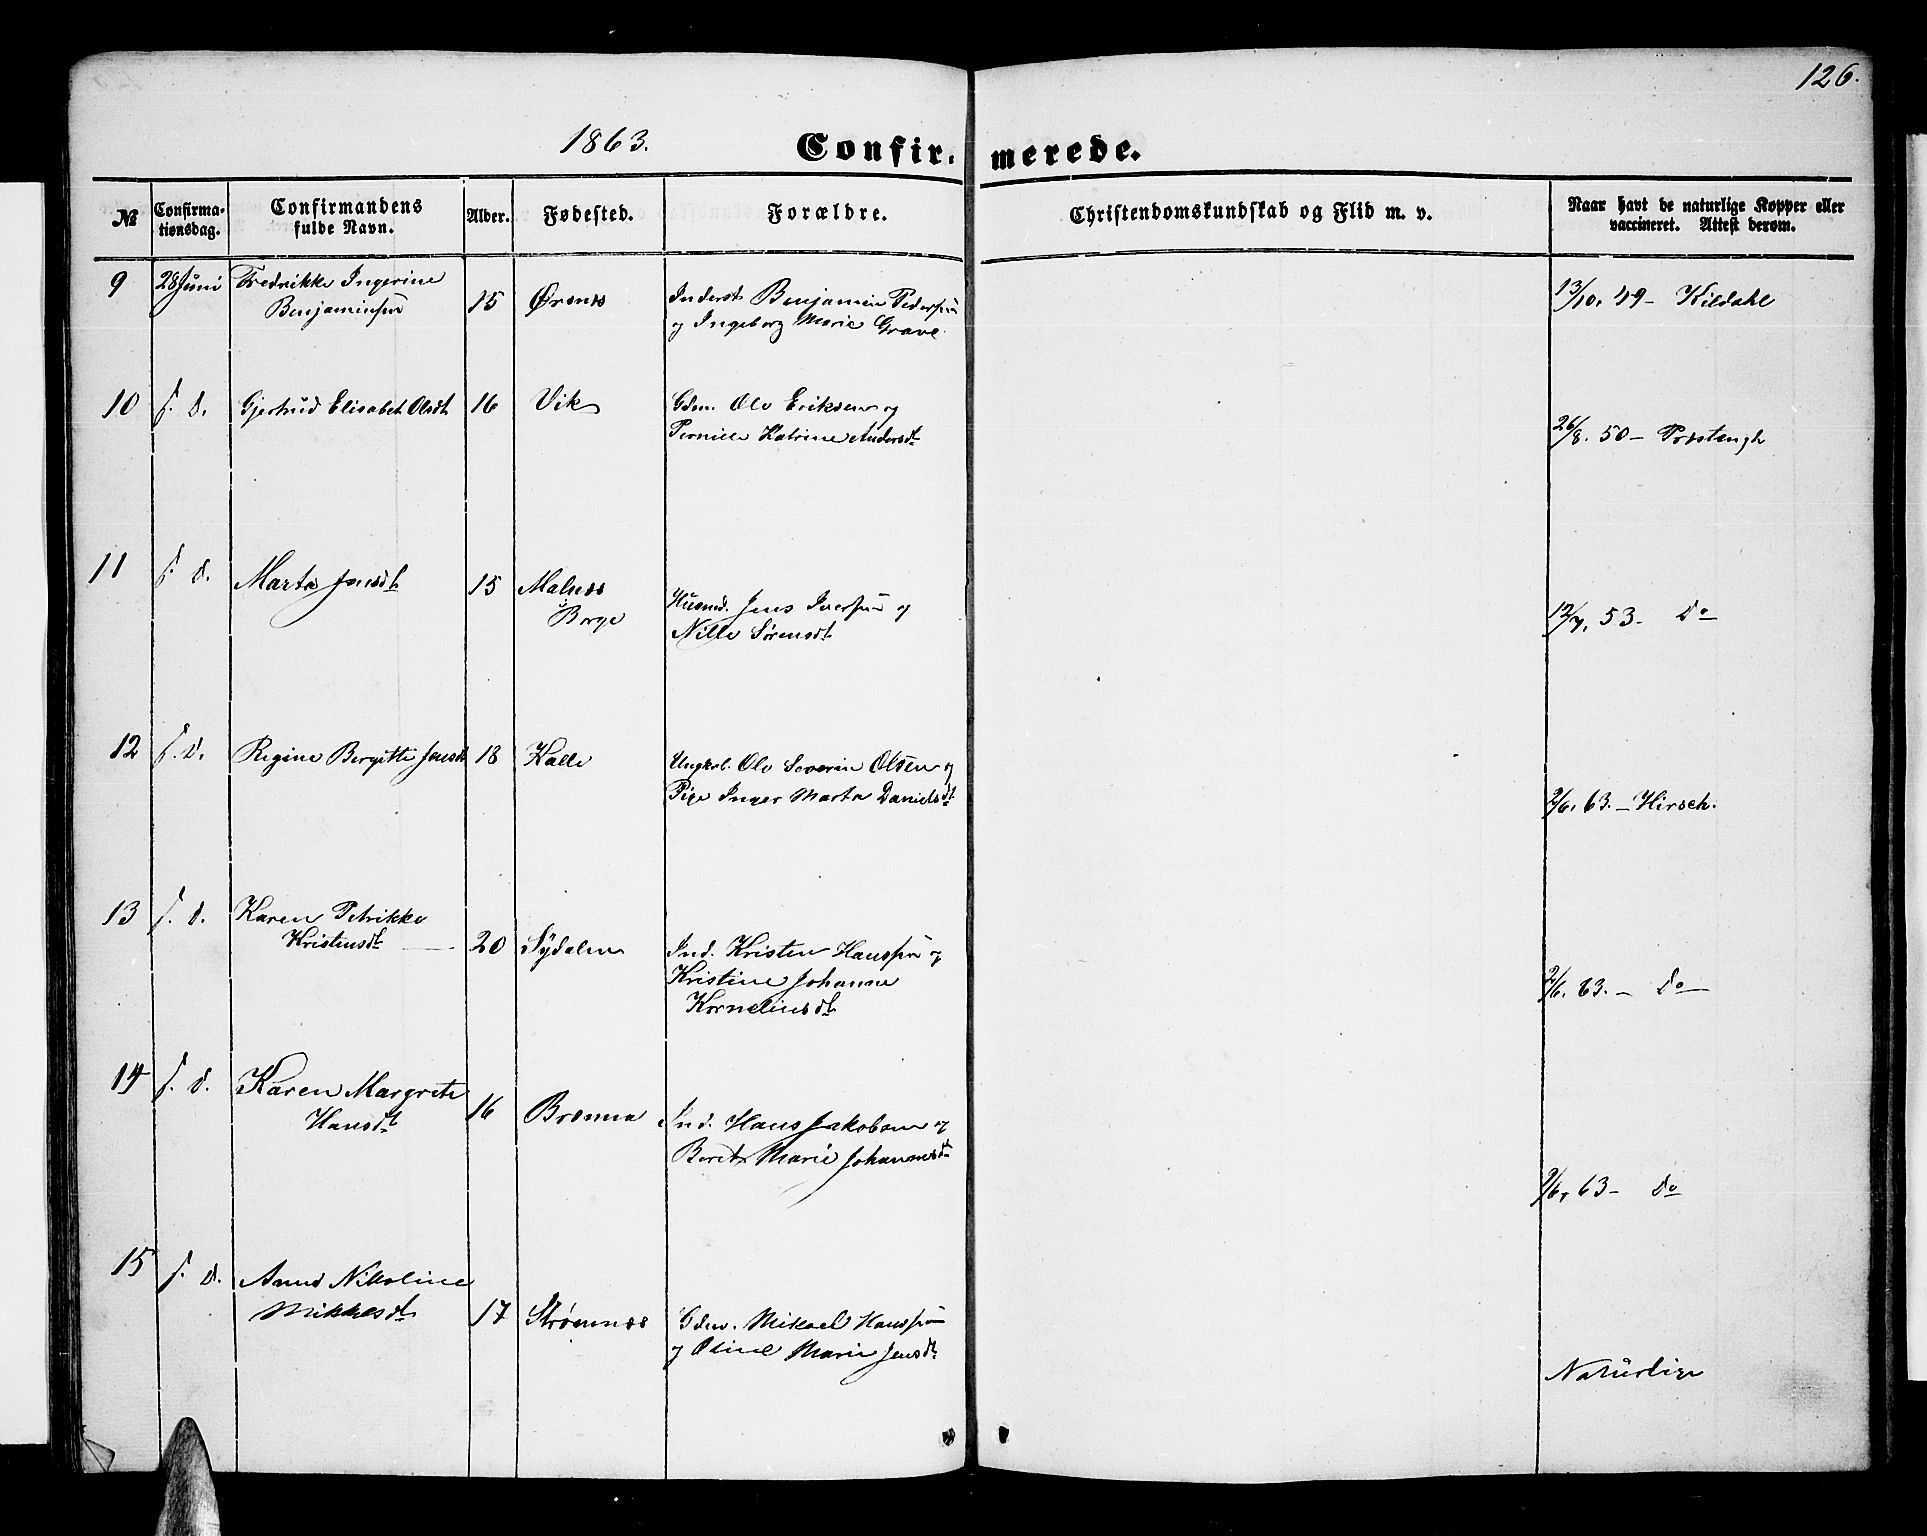 126.
1863. Confir- merede.
№ Confirma-tionsdag. Confirmandens fulde Navn. Alder. Fødested. Forældre. Christendomskundskab og Flid m. v. Naar havt de naturlige Kopper eller vaccineret. Attest derom.
9 28 Juni Fredrikke Ingerine 15 Ørsnes Inderst Benjamin Pedersen 13/10. 49 - Kildahl
Benjaminsen og Ingeborg Marie Grave.
10 s. d. Gjertrud Elisabet Olsdt 16 Vik Gdm. Ole Eriksen og
Pernille Katrine Andersdt 26/8. 50 -
11 s. d. Marta Jensdt 15 Malnes Husmd. Jens Iversen og
i Borge Nille Sørensdt 12/7. 53. Do
12 s. d. Regine Bergitte Jensdt 18 Kalle Ungkrl. Ole Severin Olsen og
Pige Inger Marta Danielsdt 2/6. 63. - Hirsch.
13 s. d. Karen Petrikke
Kristensdt 20 Sydalen Ind. Kristen Hanssen og
Kristine Johanne 2/6. 63. - do
Korneliusdt
14 s. d. Karen Margrete
Hansdt 16 Brenna Ind. Hans Jakobsen og
Beret Marie Johannesdt
2/6. 63 - do
15 s. d. Anne Nikoline
Mikkelsdt 17 Strømnes Gdm. Mikael Hanssen
og Oline Marie Jensdt
Naturlige